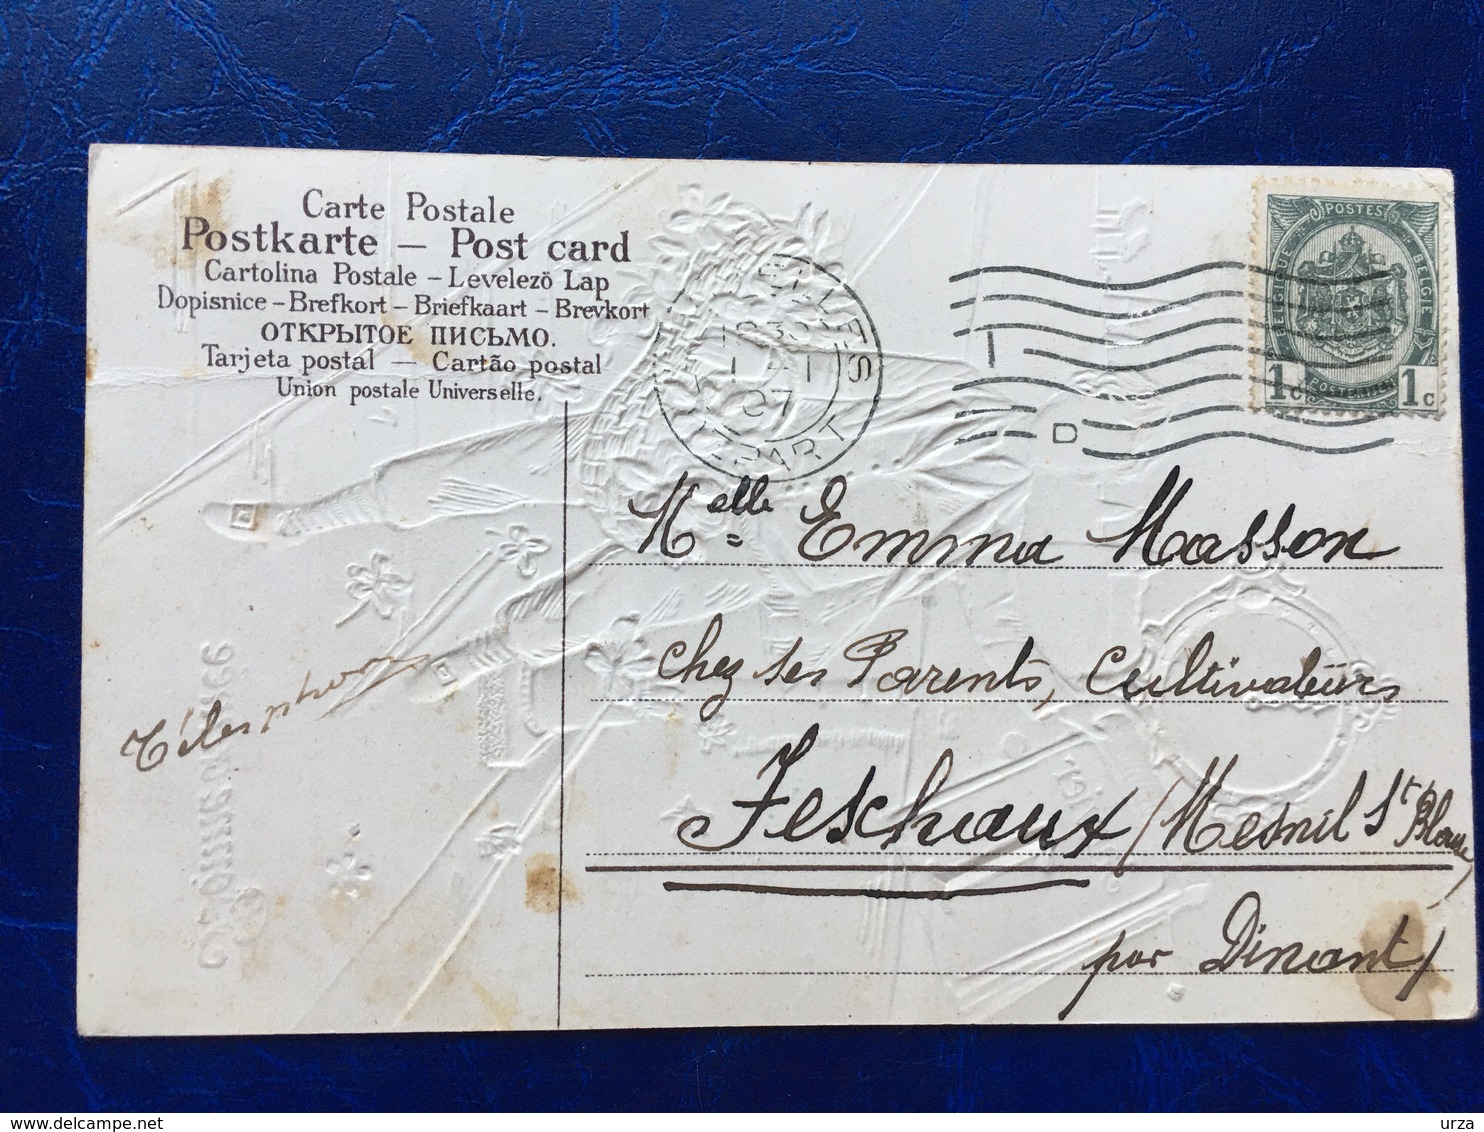 Carte Postale
Postkarte — Post card
Cartolina Postale – Levelezö Lap
Dopisnice – Brefkort – Briefkaart – Brevkort
ОТКРЫТОЕ ПИСЬМО.
Tarjeta postal — Cartão postal
Union postale Universelle.
07
POSTES
BELGIQUE
BELGIË
1c
1c
D
Melle Emma Masson
chez ses Parents, Cultivateurs
Feschaux / Mesnil St Blaise
par Dinant /
Télesphore
urza